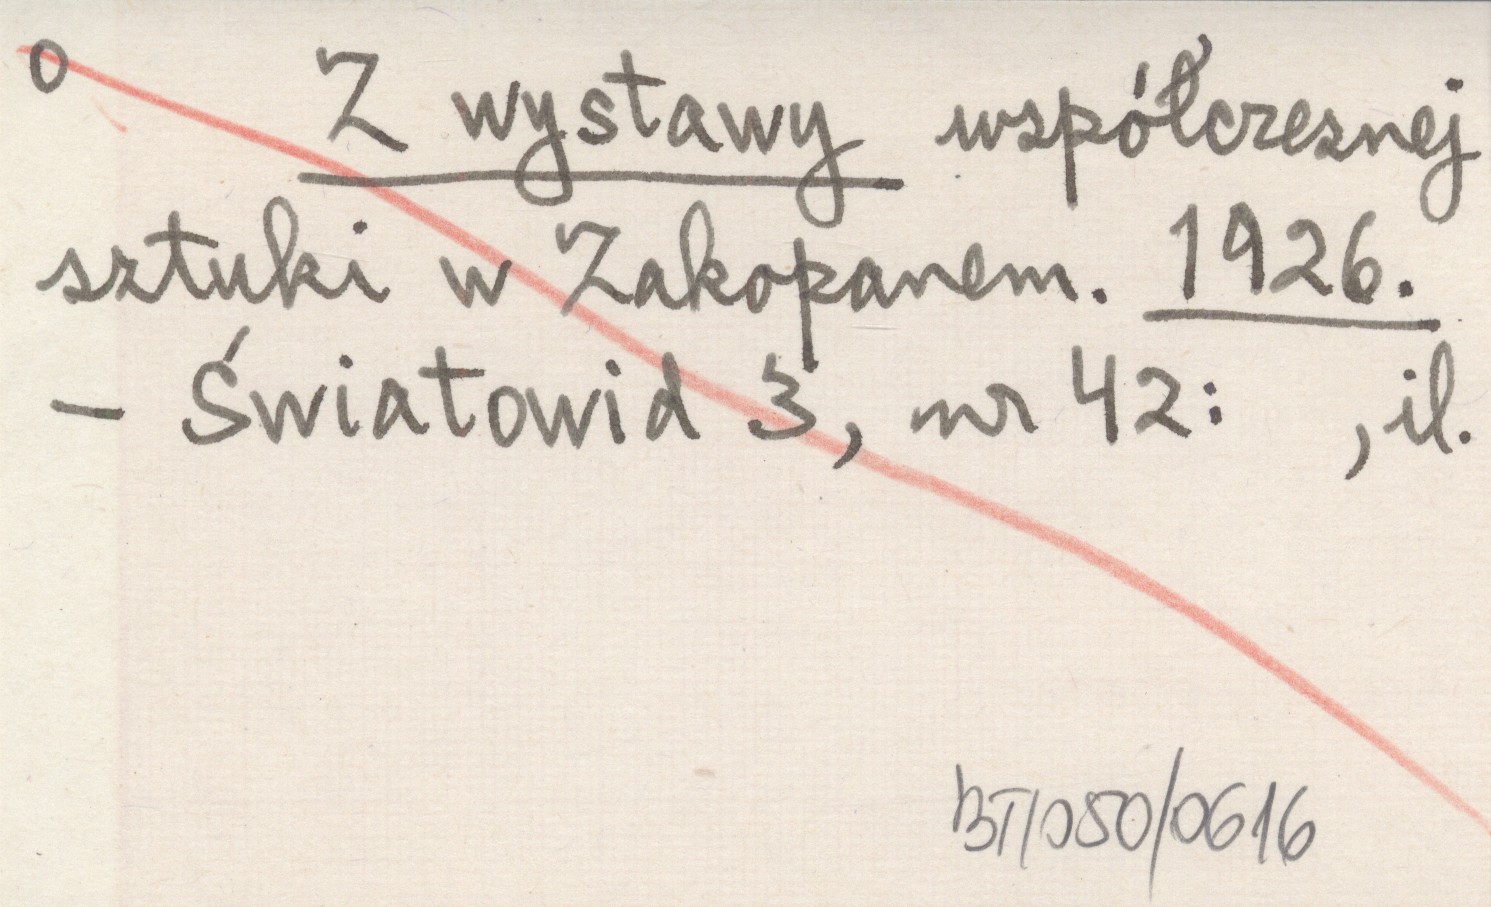 o Z wystawy współczesnej
sztuki w Zakopanem. 1926.
- Światowid 3, nr 42: , il.
BT/050/0616